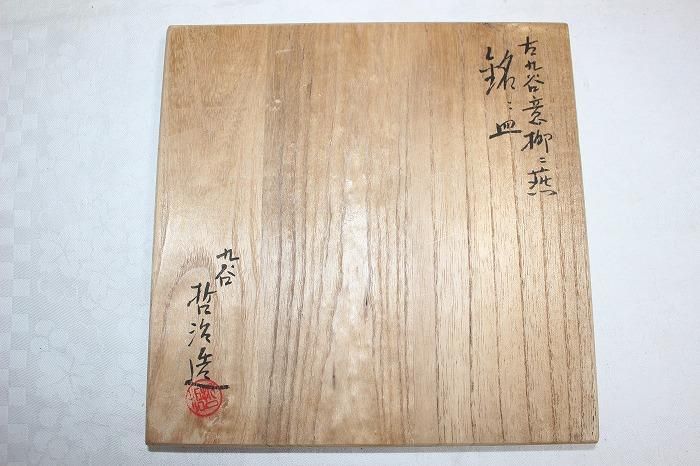 古九谷意柳ニ燕
銘々皿
九谷
哲治造